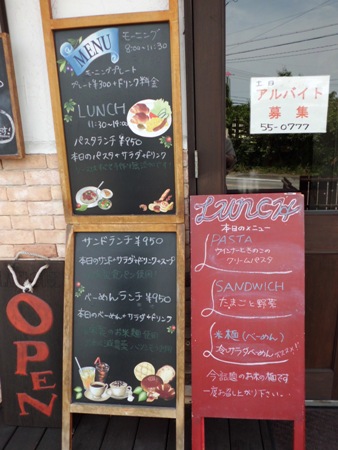 MENU
モーニング
8:00〜11:30
モーニングプレート
プレート¥300+ドリンク料金
LUNCH
11:30〜14:00
パスタランチ ¥950
本日のパスタ+サラダ+ドリンク
サンドランチ ¥950
本日のサンド+サラダ+ドリンク+スープ
べーめんランチ ¥950
本日のべーめん+サラダ+ドリンク
OPEN
アルバイト
募集
55-0777
LUNCH
本日のメニュー
PASTA
ウインナーときのこの
クリームパスタ
SANDWICH
たまごと野菜
米麺(べーめん)
冷サラダべーめん
今話題のお米の麺です
一度お召し上がり下さい。